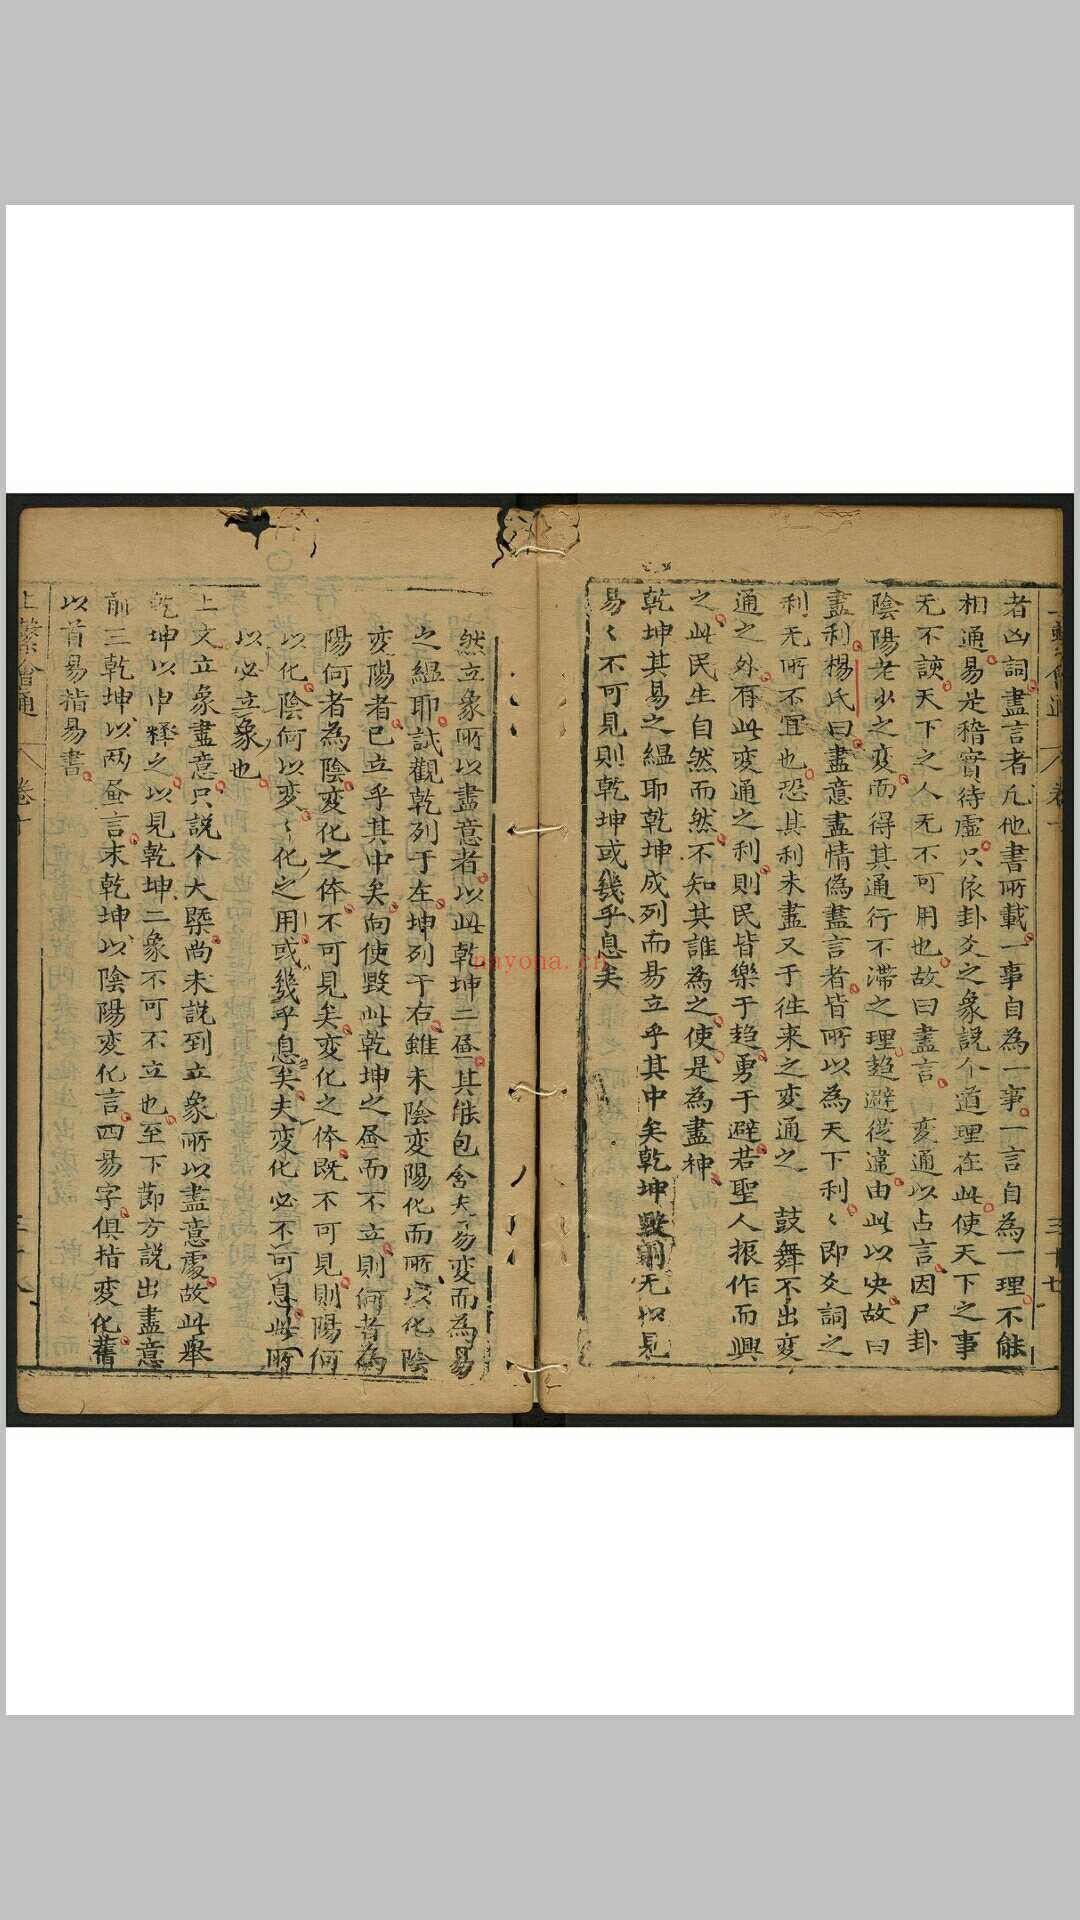 者凶詞盡言者凡他書所載一事自為一事一言自為一理不能
相通易是稽實待虛只依卦爻之象説个道理在此使天下之事
无不該天下之人无不可用也故曰盡言 变通以占言因尸卦
陰陽老少之变而得其通行不滞之理趋避從違由此以决故曰
盡利楊氏曰盡意盡情偽盡言者皆所以為天下利〻即爻詞之
利无所不宜也恐其利未盡又于徃来之变通之 鼓舞不出变
通之外有此变通之利則民皆樂于趋勇于避若聖人振作而興
之此民生自然而然不知其誰為之使是為盡神
乾坤其易之緼耶乾坤成列而易立乎其中矣乾坤毀則无以見
易〻不可見則乾坤或幾乎息矣
三十七
然立象所以盡意者以此乾坤二畫其能包含夫易变而為易
之緼耶試觀乾列于左坤列于右雖未陰变陽化而所以化陰
变陽者已立乎其中矣向使毀此乾坤之畫而不立則何者為
陽何者為陰变化之体不可見矣变化之体既不可見則陽何
以化陰何以变〻化之用或幾乎息矣夫变化必不可息此所
以必立象也
上文立象盡意只説个大槩尚未説到立象所以盡意處故此舉
乾坤以申釋之以見乾坤二象不可不立也至下節方説出盡意
前三乾坤以两畫言末乾坤以陰陽变化言四易字俱指变化舊
以首易指易書
上繫會通 卷十
nayona.cn